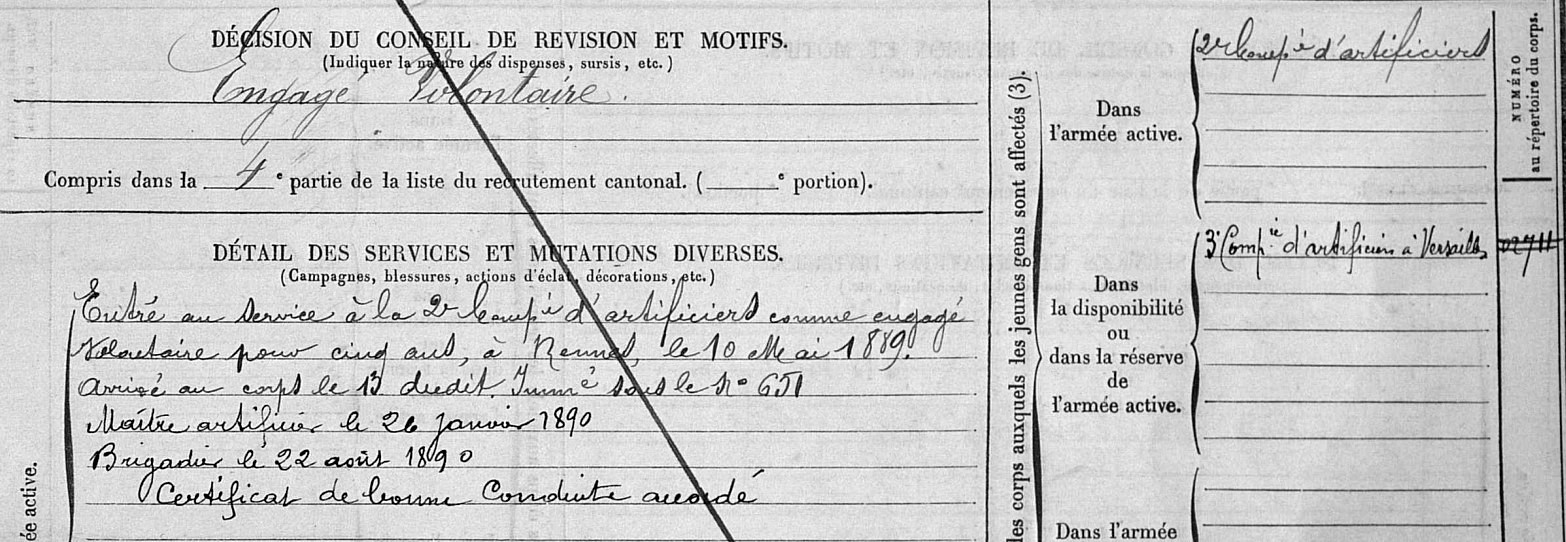 DÉCISION DU CONSEIL DE REVISION ET MOTIFS.
(Indiquer la nature des dispenses, sursis, etc.)
Engagé Volontaire.
Compris dans la 4e partie de la liste du recrutement cantonal. ( e portion).
DÉTAIL DES SERVICES ET MUTATIONS DIVERSES.
(Campagnes, blessures, actions d'éclat, décorations, etc.)
Entré au service à la 2e Compie d'artificiers comme engagé
Volontaire pour cinq ans, à Rennes, le 10 Mai 1889.
Arrivé au corps le 13 dudit. Immé sous le No
Maître artificier le 26 janvier 1890
Brigadier le 22 août 1890
Certificat de bonne Conduite accordé
ée active.
les corps auxquels les jeunes gens sont affectés (3).
Dans
l'armée active.
2e Compie d'artificiers
Dans
la disponibilité
ou
dans la réserve
de
l'armée active.
3e Compie d'artificiers à Versailles
Dans l'armée
NUMÉRO
au répertoire du corps.